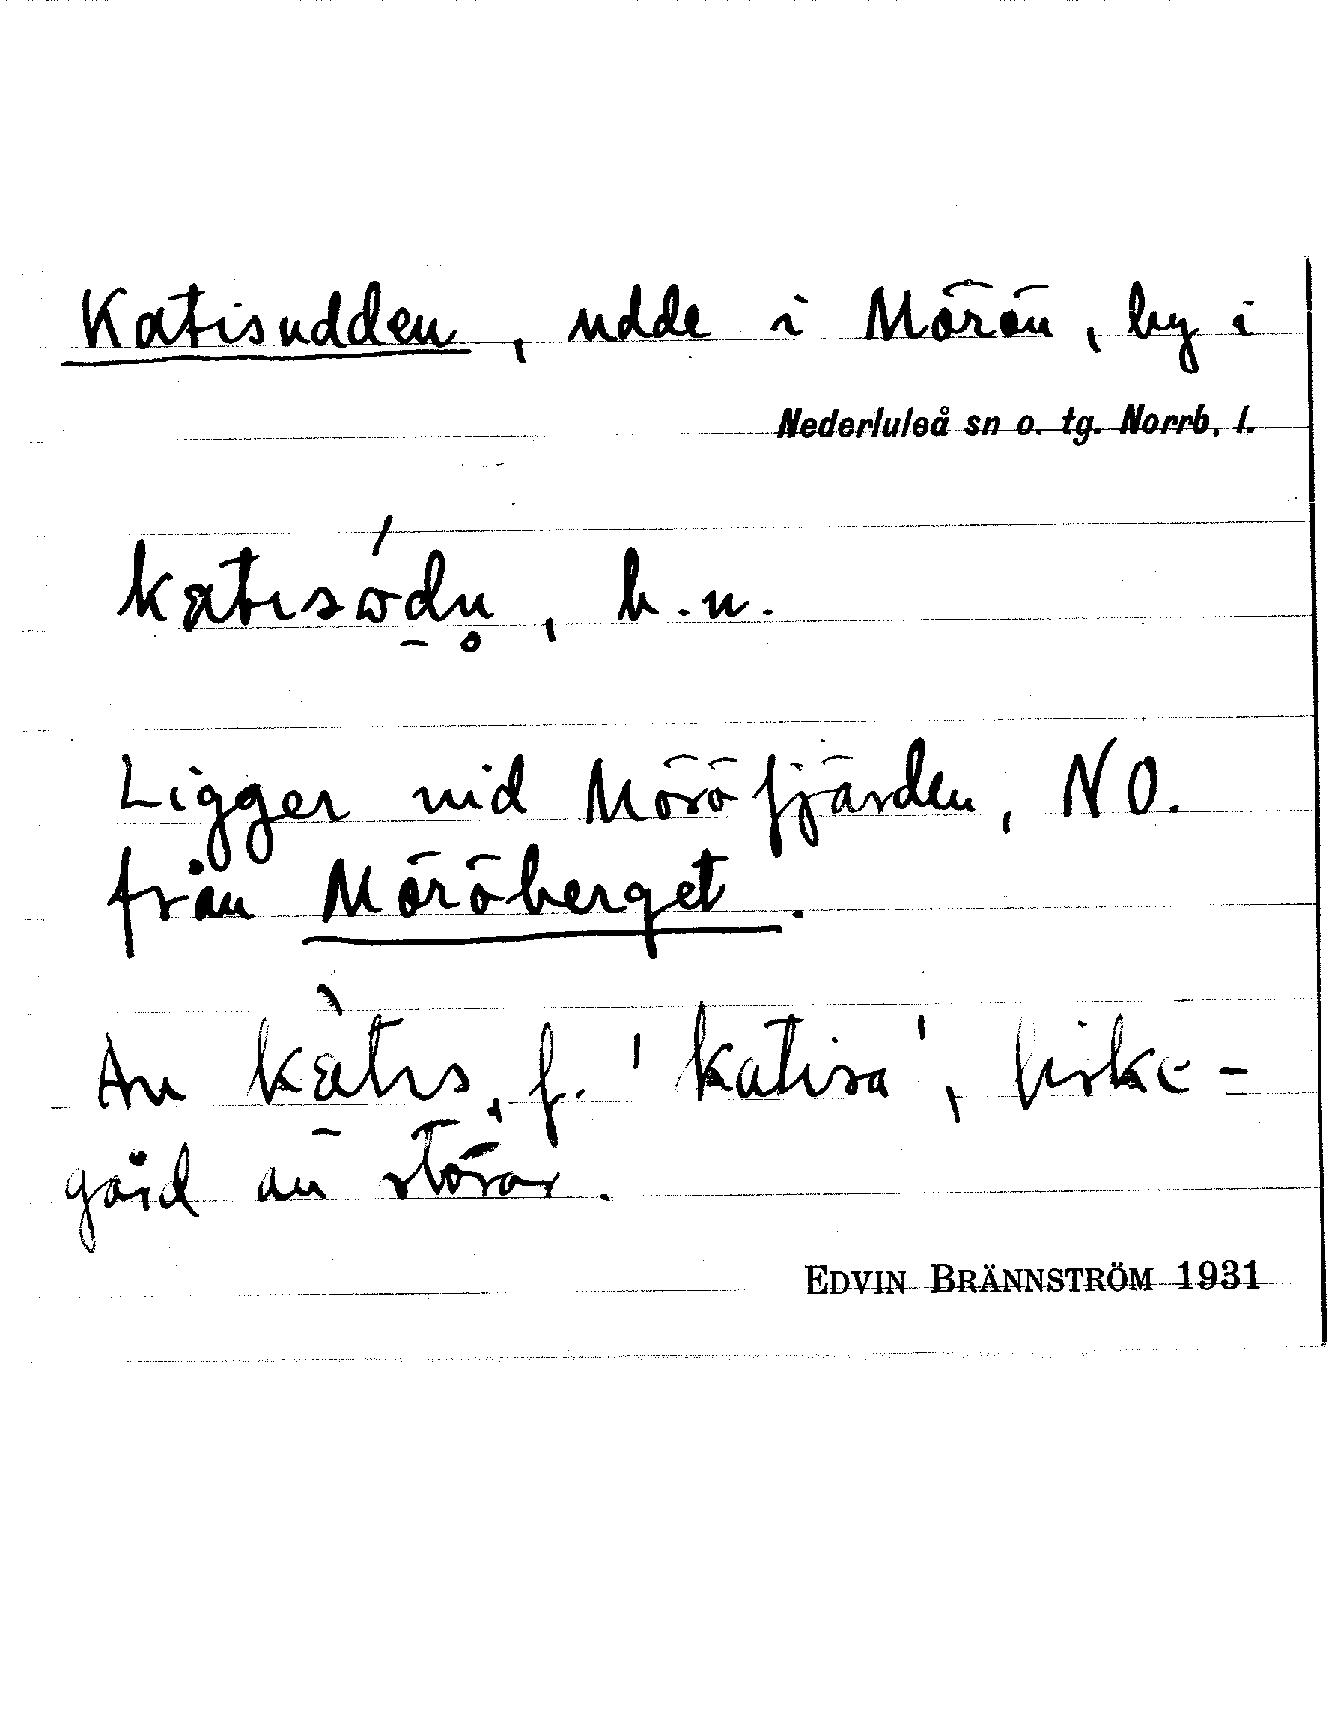 Katisudden, udde i Mörön, by i
Nederluleå sn o. tg. Norrb. l.
katisωdn̥, b.n.
Ligger vid Möröfjärden, NO.
från Möröberget.
Av kàtis, f. 'katisa', fiske-
gård av störar.
EDVIN BRÄNNSTRÖM 1931